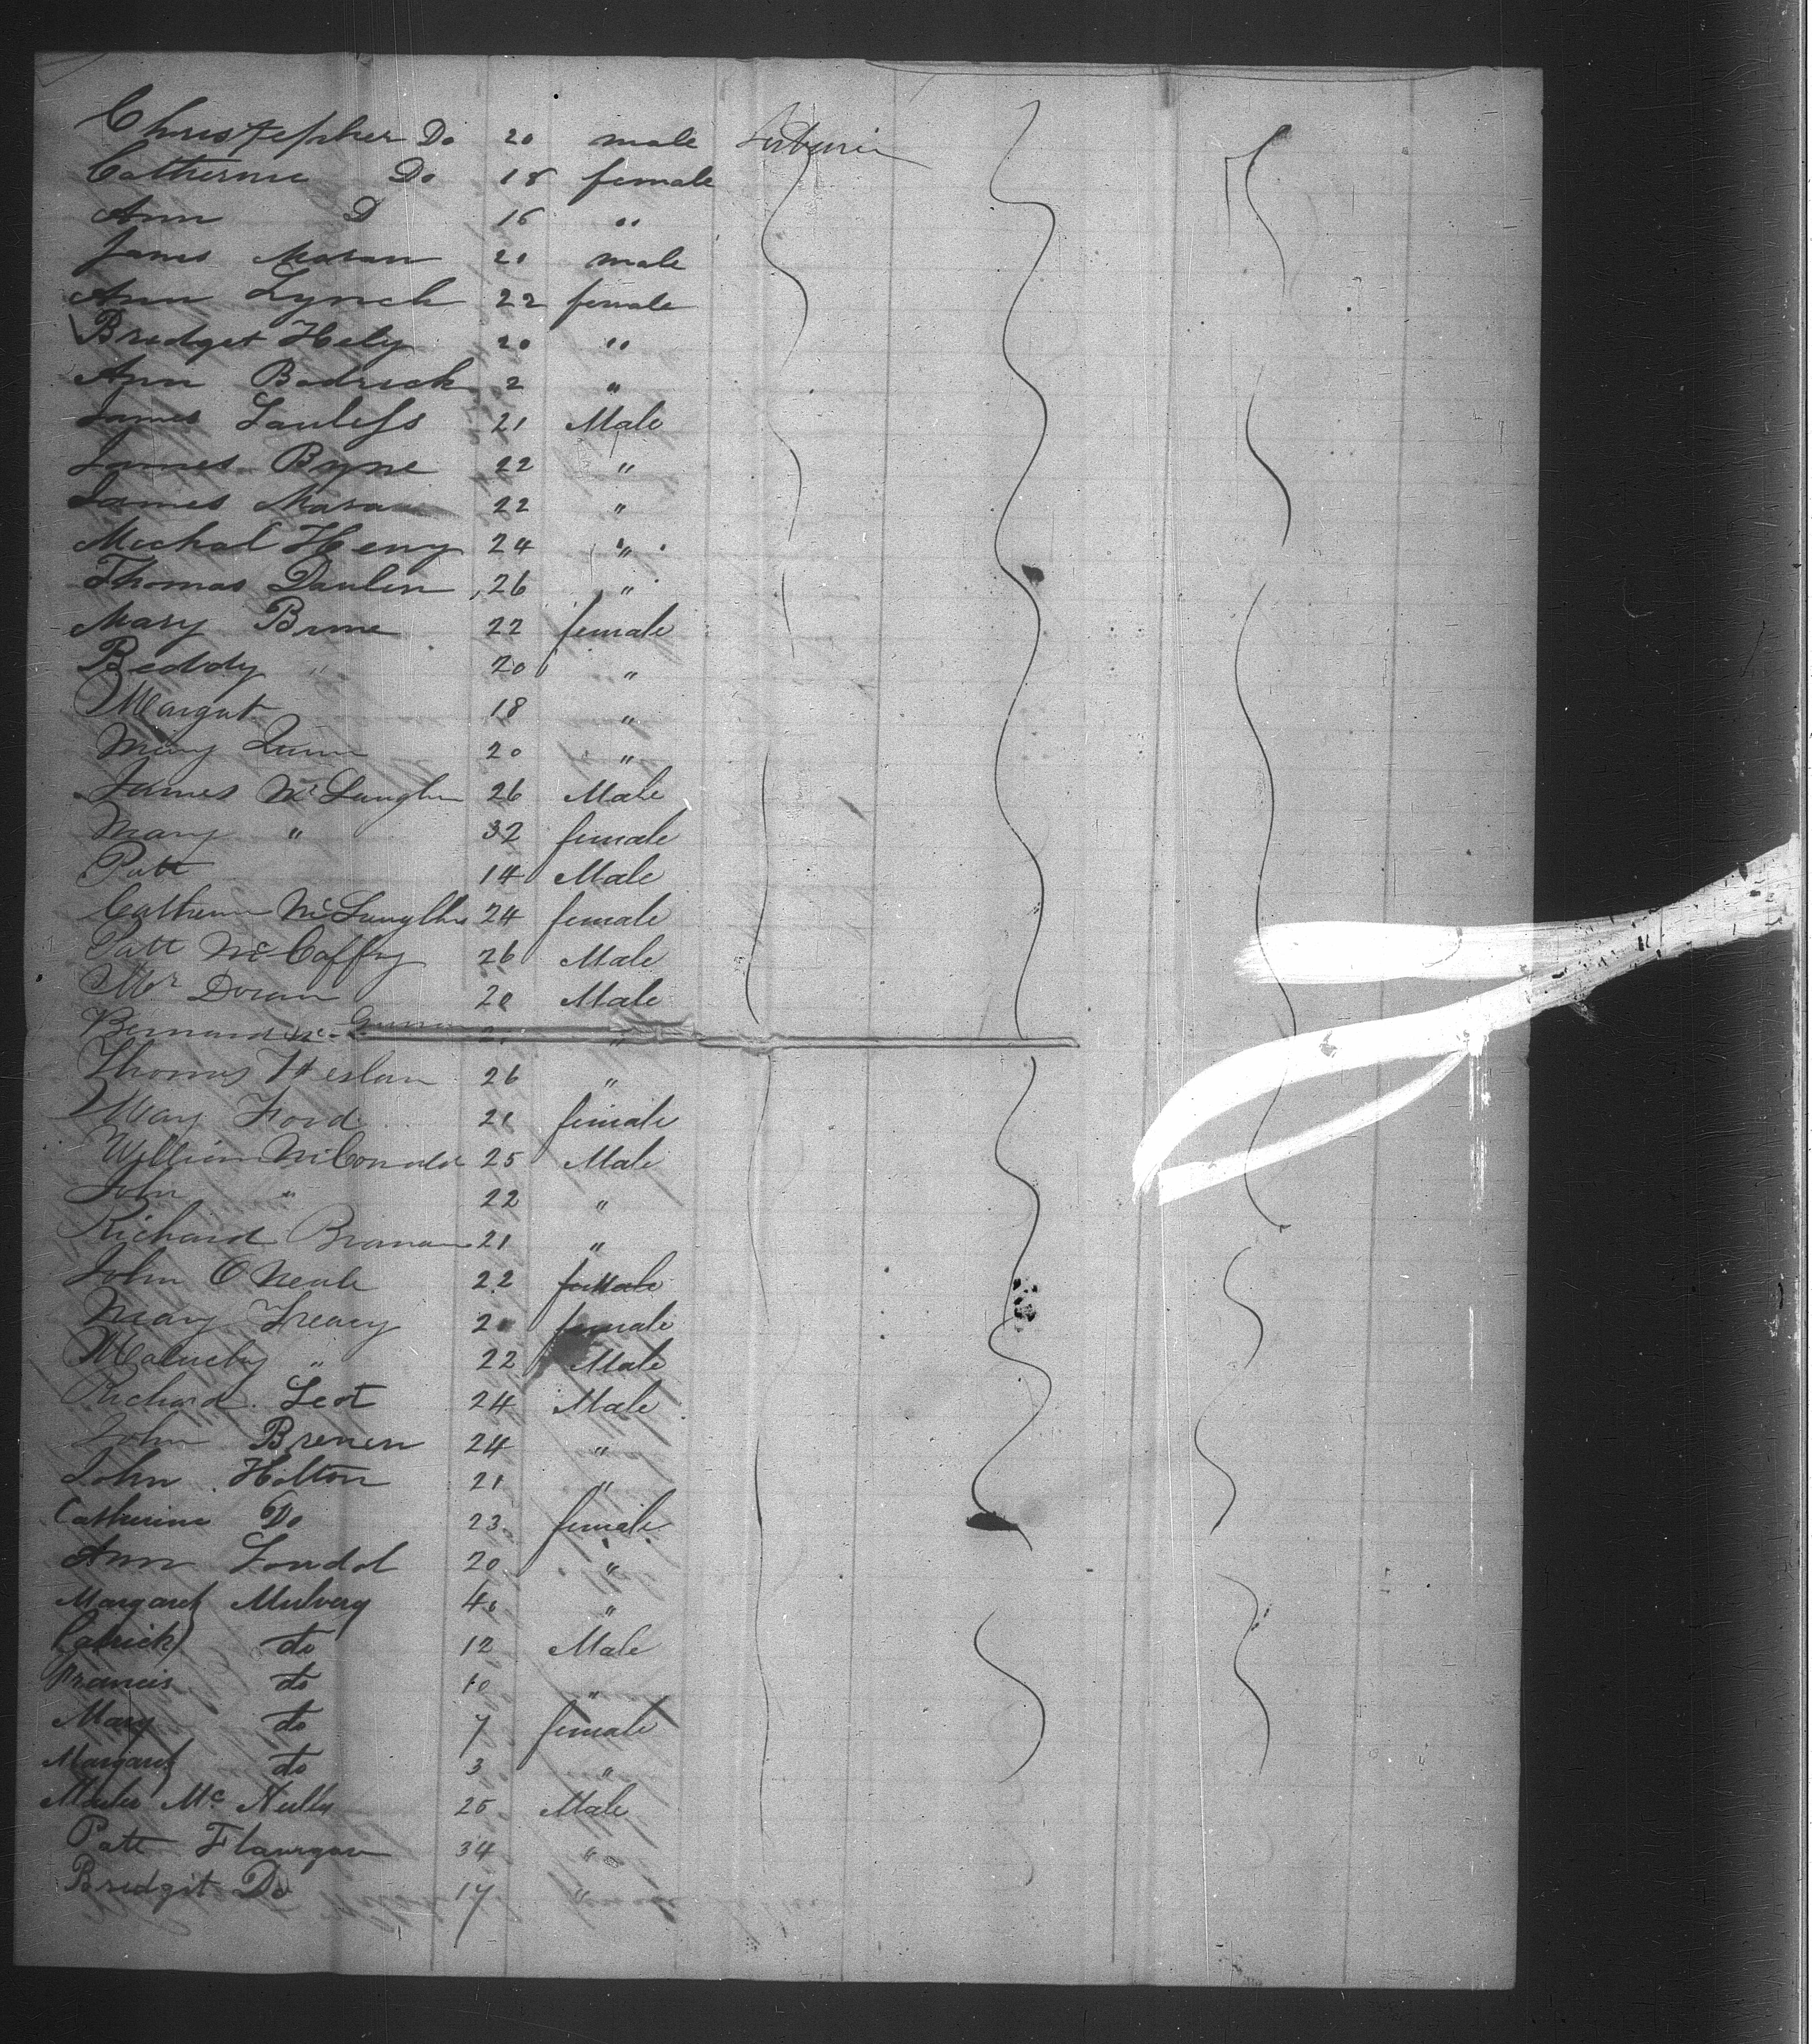 Christopher Do 20 male
Catherine Do 18 female
Ann D 16 "
James Moran 20 male
Ann Lynch 22 female
Bridget Hely 20 "
Ann Bodrick 2 "
James Lauless 21 Male
James Byne 22 "
James Mara 22 "
Michal Heny 24 "
Thomas Daulin 26 "
Mary Brine 22 female
Beddy " 20 "
Margat 18 "
Mary Quinn 20 "
James McLaughn 26 Male
Mary " 32 female
Patt 14 Male
Cathern 24 female
Patt McCaffry 26 Male
Mr Doran 20 Male
Bernard Mc "
Thomas Heslan 26 "
Mary Ford 21 female
William McConald 25 Male
John " 22 "
Richard Branan 21 "
John O Neale 22
Mary Treacy 2 female
Malachy " 22 Male
Richard Scot 24 Male
John Brenen 24 "
John Holton 21 "
Catherine Do 23 female
Ann 20 "
Margaret Mulvery 40 "
Patrick do 12 Male
Francis do 10 "
Mary do 7 female
Margaret do 3 "
Mc 25 Male
Patt Flanigan 34 "
Bridgit Do 17 "